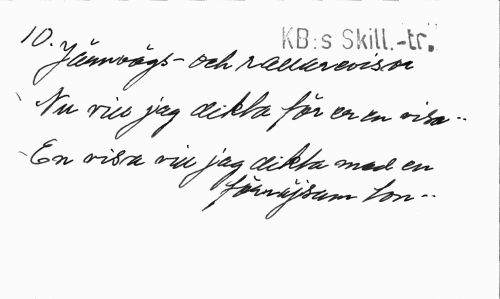 10.
KB:s Skill.-tr.
Järnvägs- och rallarevisor
Nu vill jag dikta för er en visa--
En visa vill jag dikta med en
förnöjsam ton--